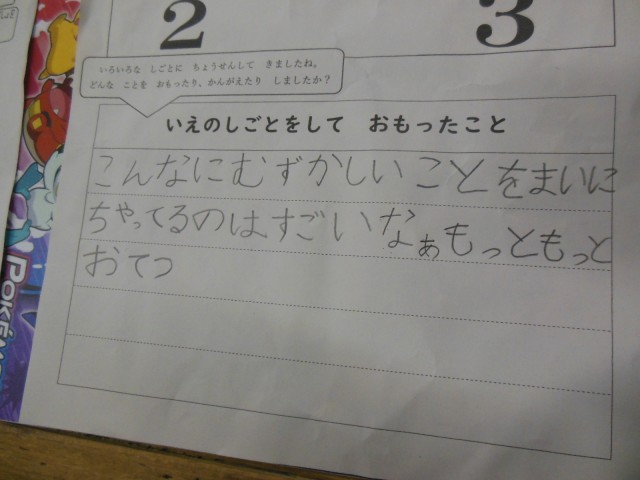 2
3
いろいろな しごとに ちょうせんして きましたね。
どんな ことを おもったり、かんがえたり しましたか?
いえのしごとをして おもったこと
こんなにむずかしいことをまいに
ちやってるのはすごいなぁもっともっと
おてつ
POKÉM